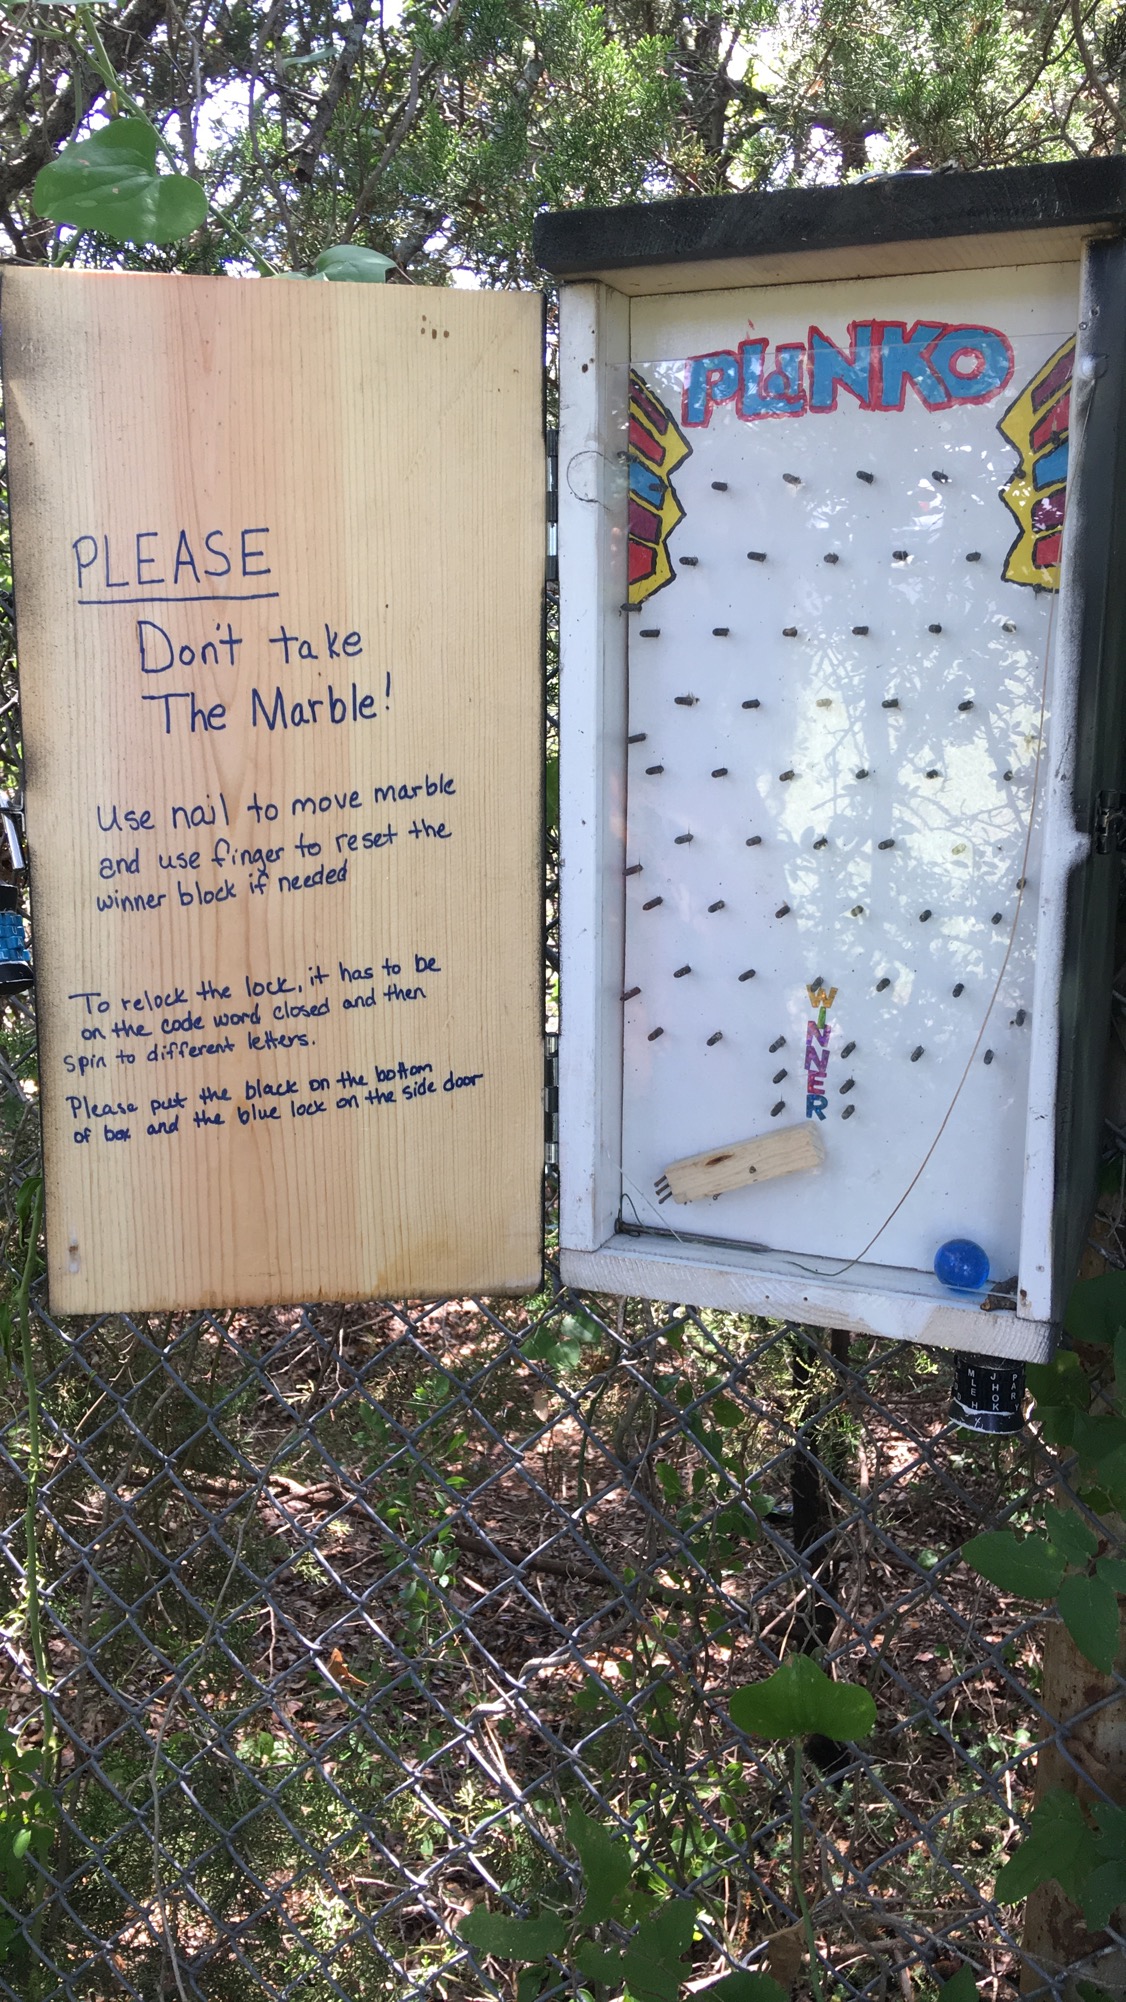 PLEASE
Don't take
The Marble!
Use nail to move marble
and use finger to reset the
winner block if needed
To relock the lock, it has to be
on the code word closed and then
spin to different letters.
Please put the black on the bottom
of box and the blue lock on the side door
PLUNKO
WINNER